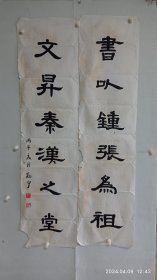 書以鍾張為祖
文昇秦漢之堂
2024.04.09 12:43